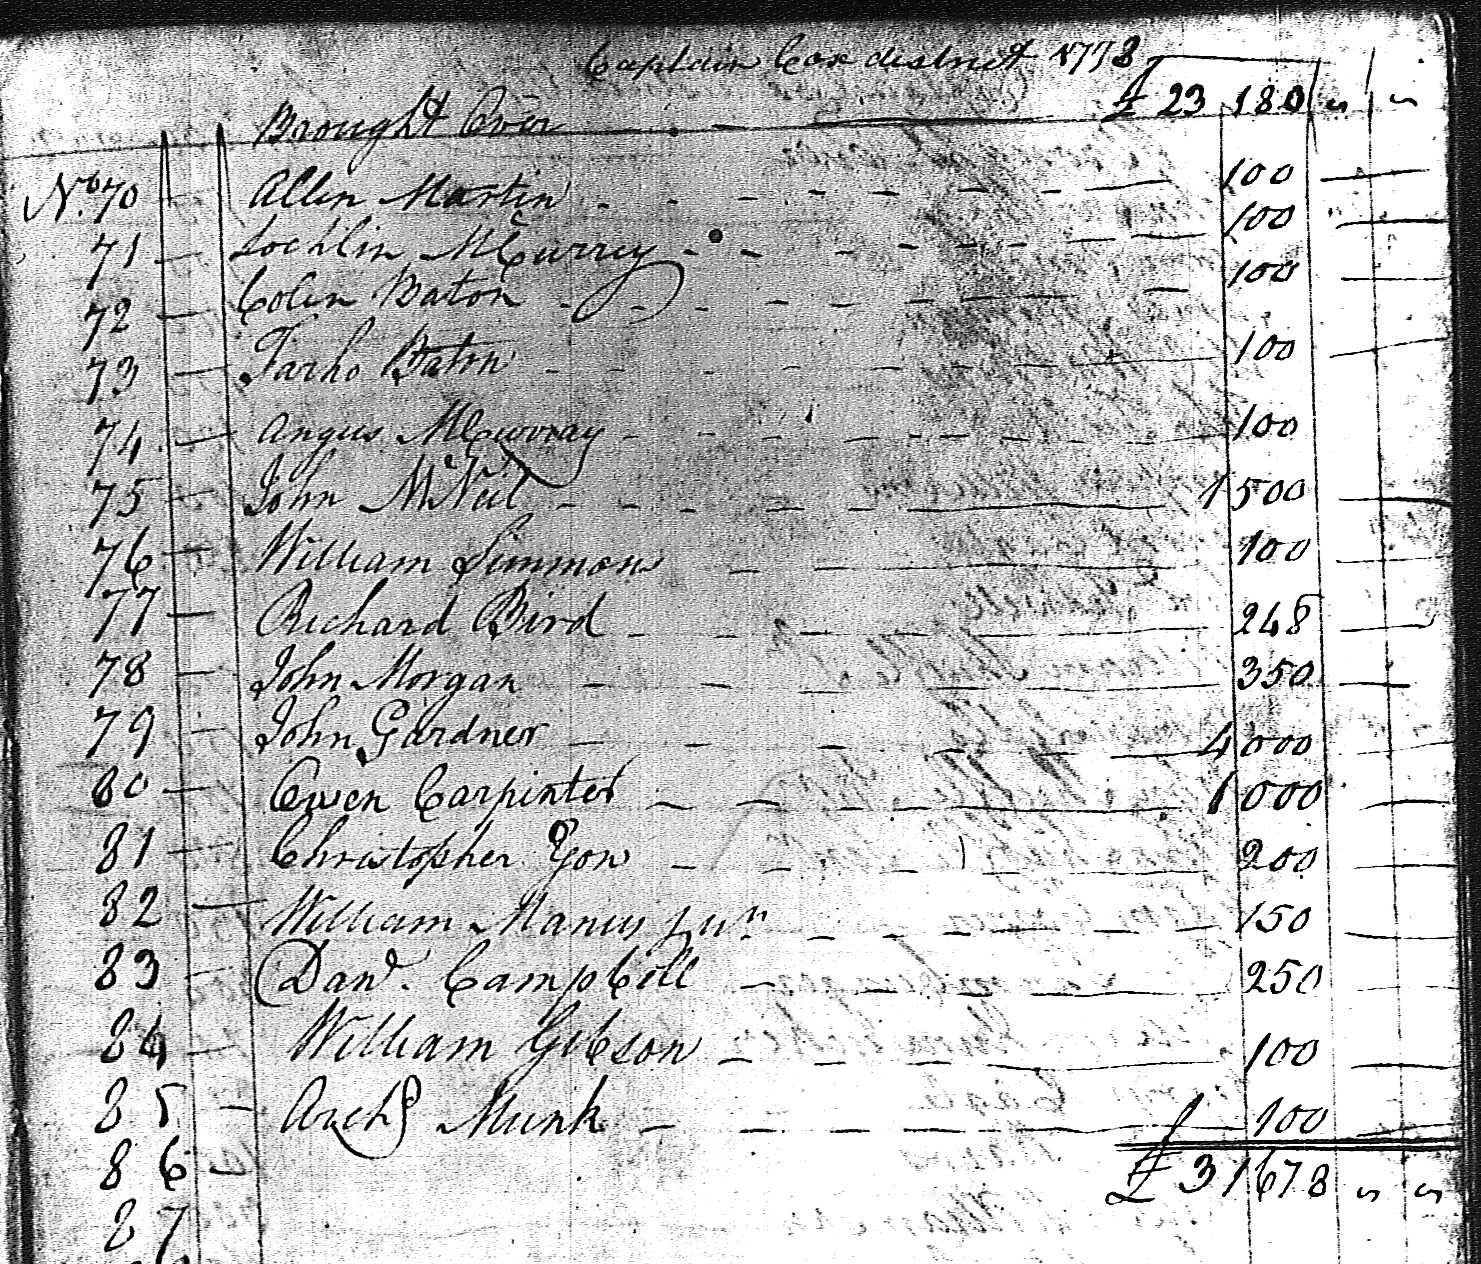 Captain Cox district 1778
Brought Over £ 23 180 " "
No. 70 Allin Martin 100
71 Lochlin McCurrey 100
72 Colin Baton 100
73 Farho Baton 100
74 Angus McCurray 100
75 John McNeil 1500
76 William Simmons 100
77 Richard Bird 248
78 John Morgan 350
79 John Gardner 4000
80 Owen Carpinter 1000
81 Christopher Yow 200
82 William Manus Jun 150
83 Danl. Campbell 250
84 William Gibson 100
85 Archd Munk 100
86 £ 31678 " "
87